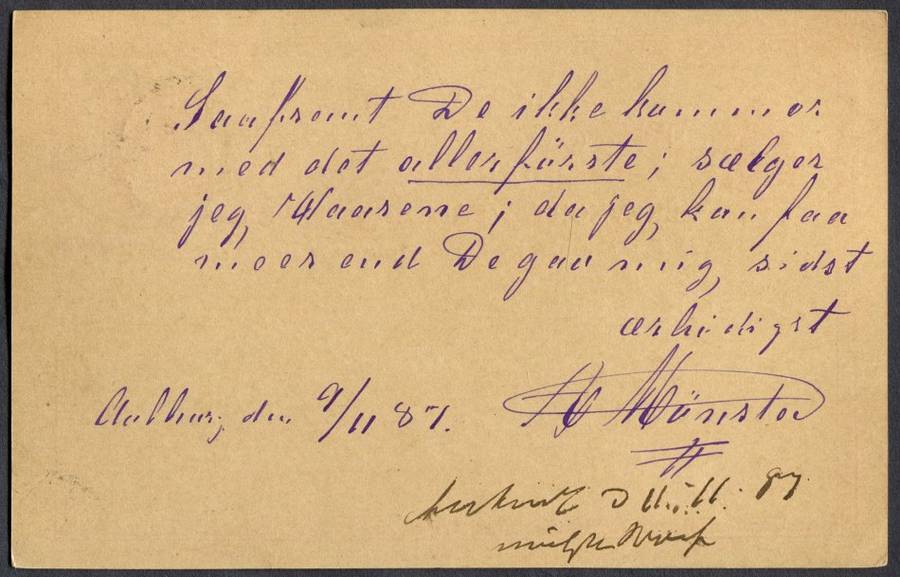 Saafremt De ikke kommer
med det allerförste; sælger
jeg Waarene; da jeg kan faa
meer end De gav mig sidst
ærbødigst
Münster
Aalborg den 9/11 87.
11.11.87